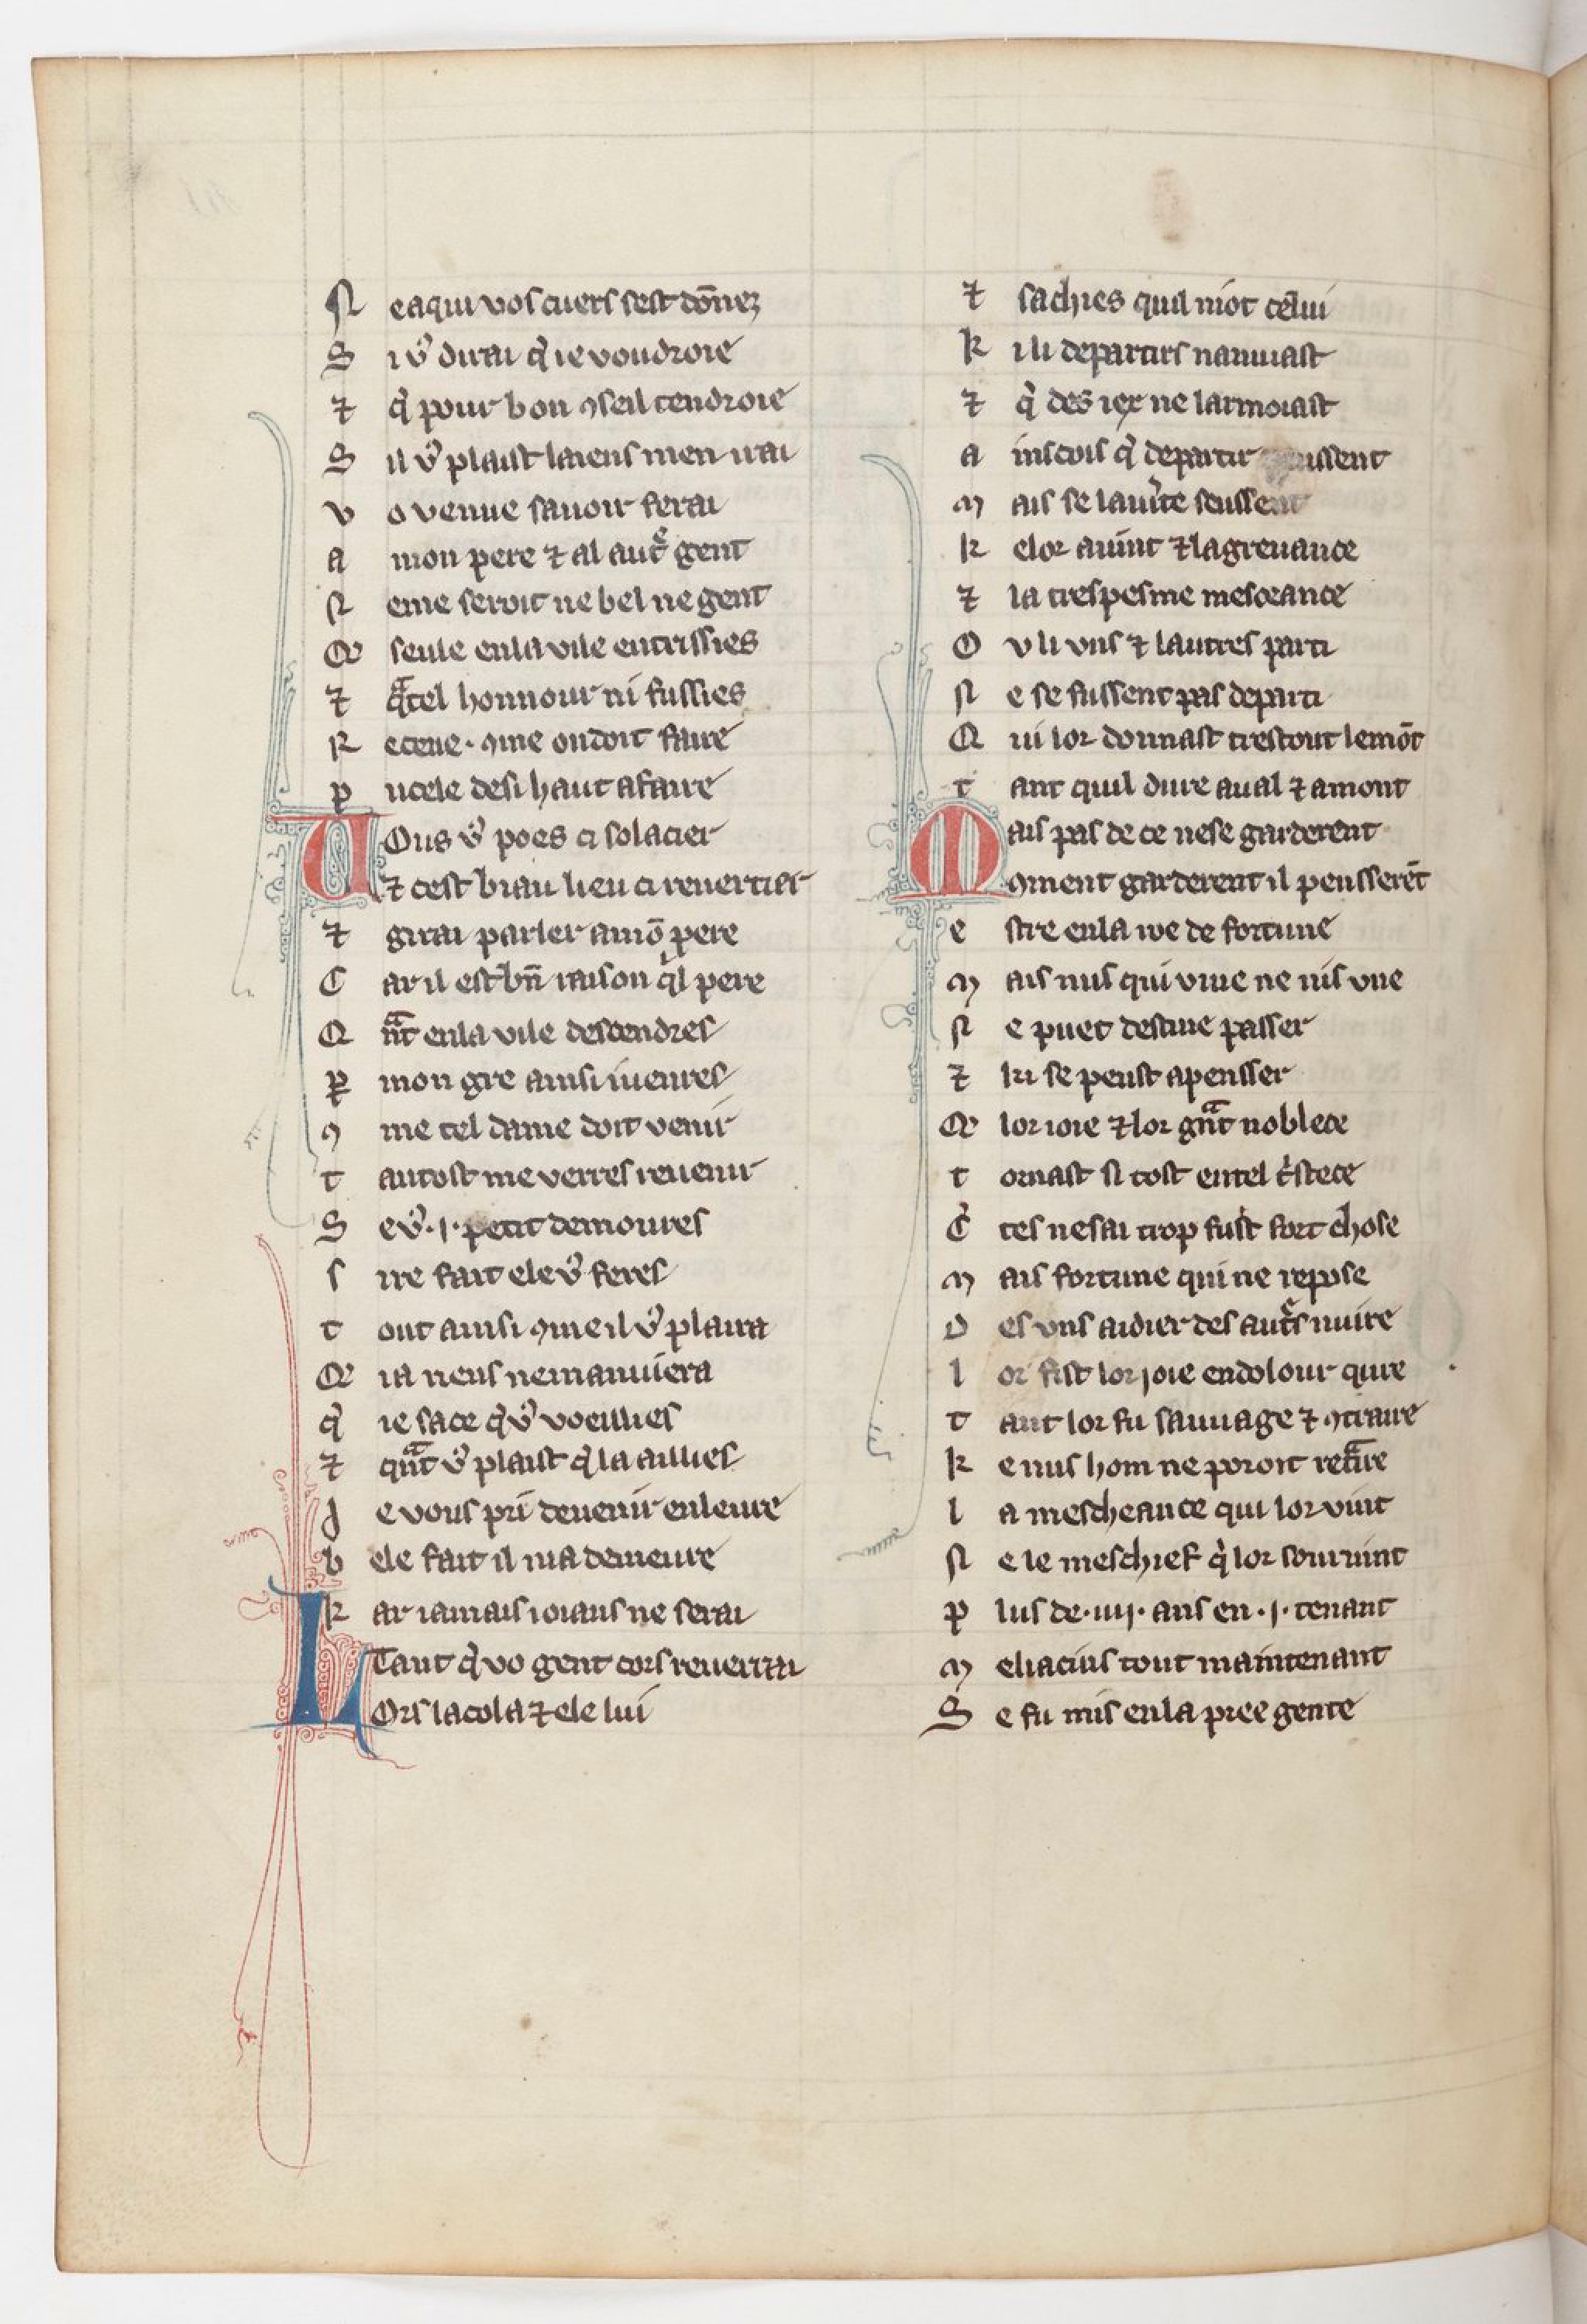 N eaqui vos cuers sest dōnez
S i vꝰ dirai q̇ ie voudroie
⁊ q̇ pour bon ꝯseil tendroie
S il vꝰ plaist laiens men irai
v o venue sauoir ferai
a mon pere ⁊ al autᷓ gent
N eme seroit ne bel ne gent
Q̄ seule enla vile entrissies
⁊ qᷓtel honnour ni fussies
R eceue · ꝯme on doit faire
p ucele desi haut afaire
VOus vꝰ poes ci solacier
⁊ cest biau lieu ci reuertier
⁊ girai parler a mō pere
C ar il est bn̄ raison qͥl pere
Q nᷓt enla vile descendres
ꝑ mon gre ainsi iuenres
ꝯ me tel dame doit venir
t antost me verres reuenir
S e vꝰ · j · petit demoures
s ire fait ele vꝰ feres
t out ainsi ꝯme il vꝰ plaira
Q̄ ia riens nemanuiera
q̇ ie face q̇ vꝰ voeillies
⁊ qᷓnt vꝰ plaist q̇ la aillies
J e vous pri deuenir enleure
b ele fait il ma demeure
k ar iamais ioians ne serai
Tant q̇ vo gent cors reuerrai
LOrs lacola ⁊ ele lui
⁊ sachies quil niot celui
k i li departirs nanuiast
⁊ q̇ des iex ne larmoiast
a inscois q̇ departir ussent
m ais se lauͥte seussent
k e lor auint ⁊ lagreuance
⁊ la trespesme mesceance
O v li vns ⁊ lautres parti
N e se fussent pas departi
Q ui lor donnast trestout lemōt
t ant quil dure aual ⁊ amont
Mais pas de ce nese garderent
ꝯment garderent il pensserēt
e stre enla roe de fortune
m ais nus qui viue ne nis vne
N e puet destine passer
⁊ ki se peust apensser
Q̄ lor ioie ⁊ lor gᷓnt noblece
t ornast si tost entel tͥstece
C̉ tes nesai trop fust fort chose
m ais fortune qui ne repose
D es vns aidier des autᷓs nuire
l or fist lor joie endolour quire
t ant lor fu sauuage ⁊ ꝯtraire
k e nus hom ne poroit retᷓire
l a mescheance qui lor vint
N e le meschief q̇ lor souruint
p lus de · iiij · ans en · j · tenant
m eliacins tout maintenant
S e fu mis enla pree gente